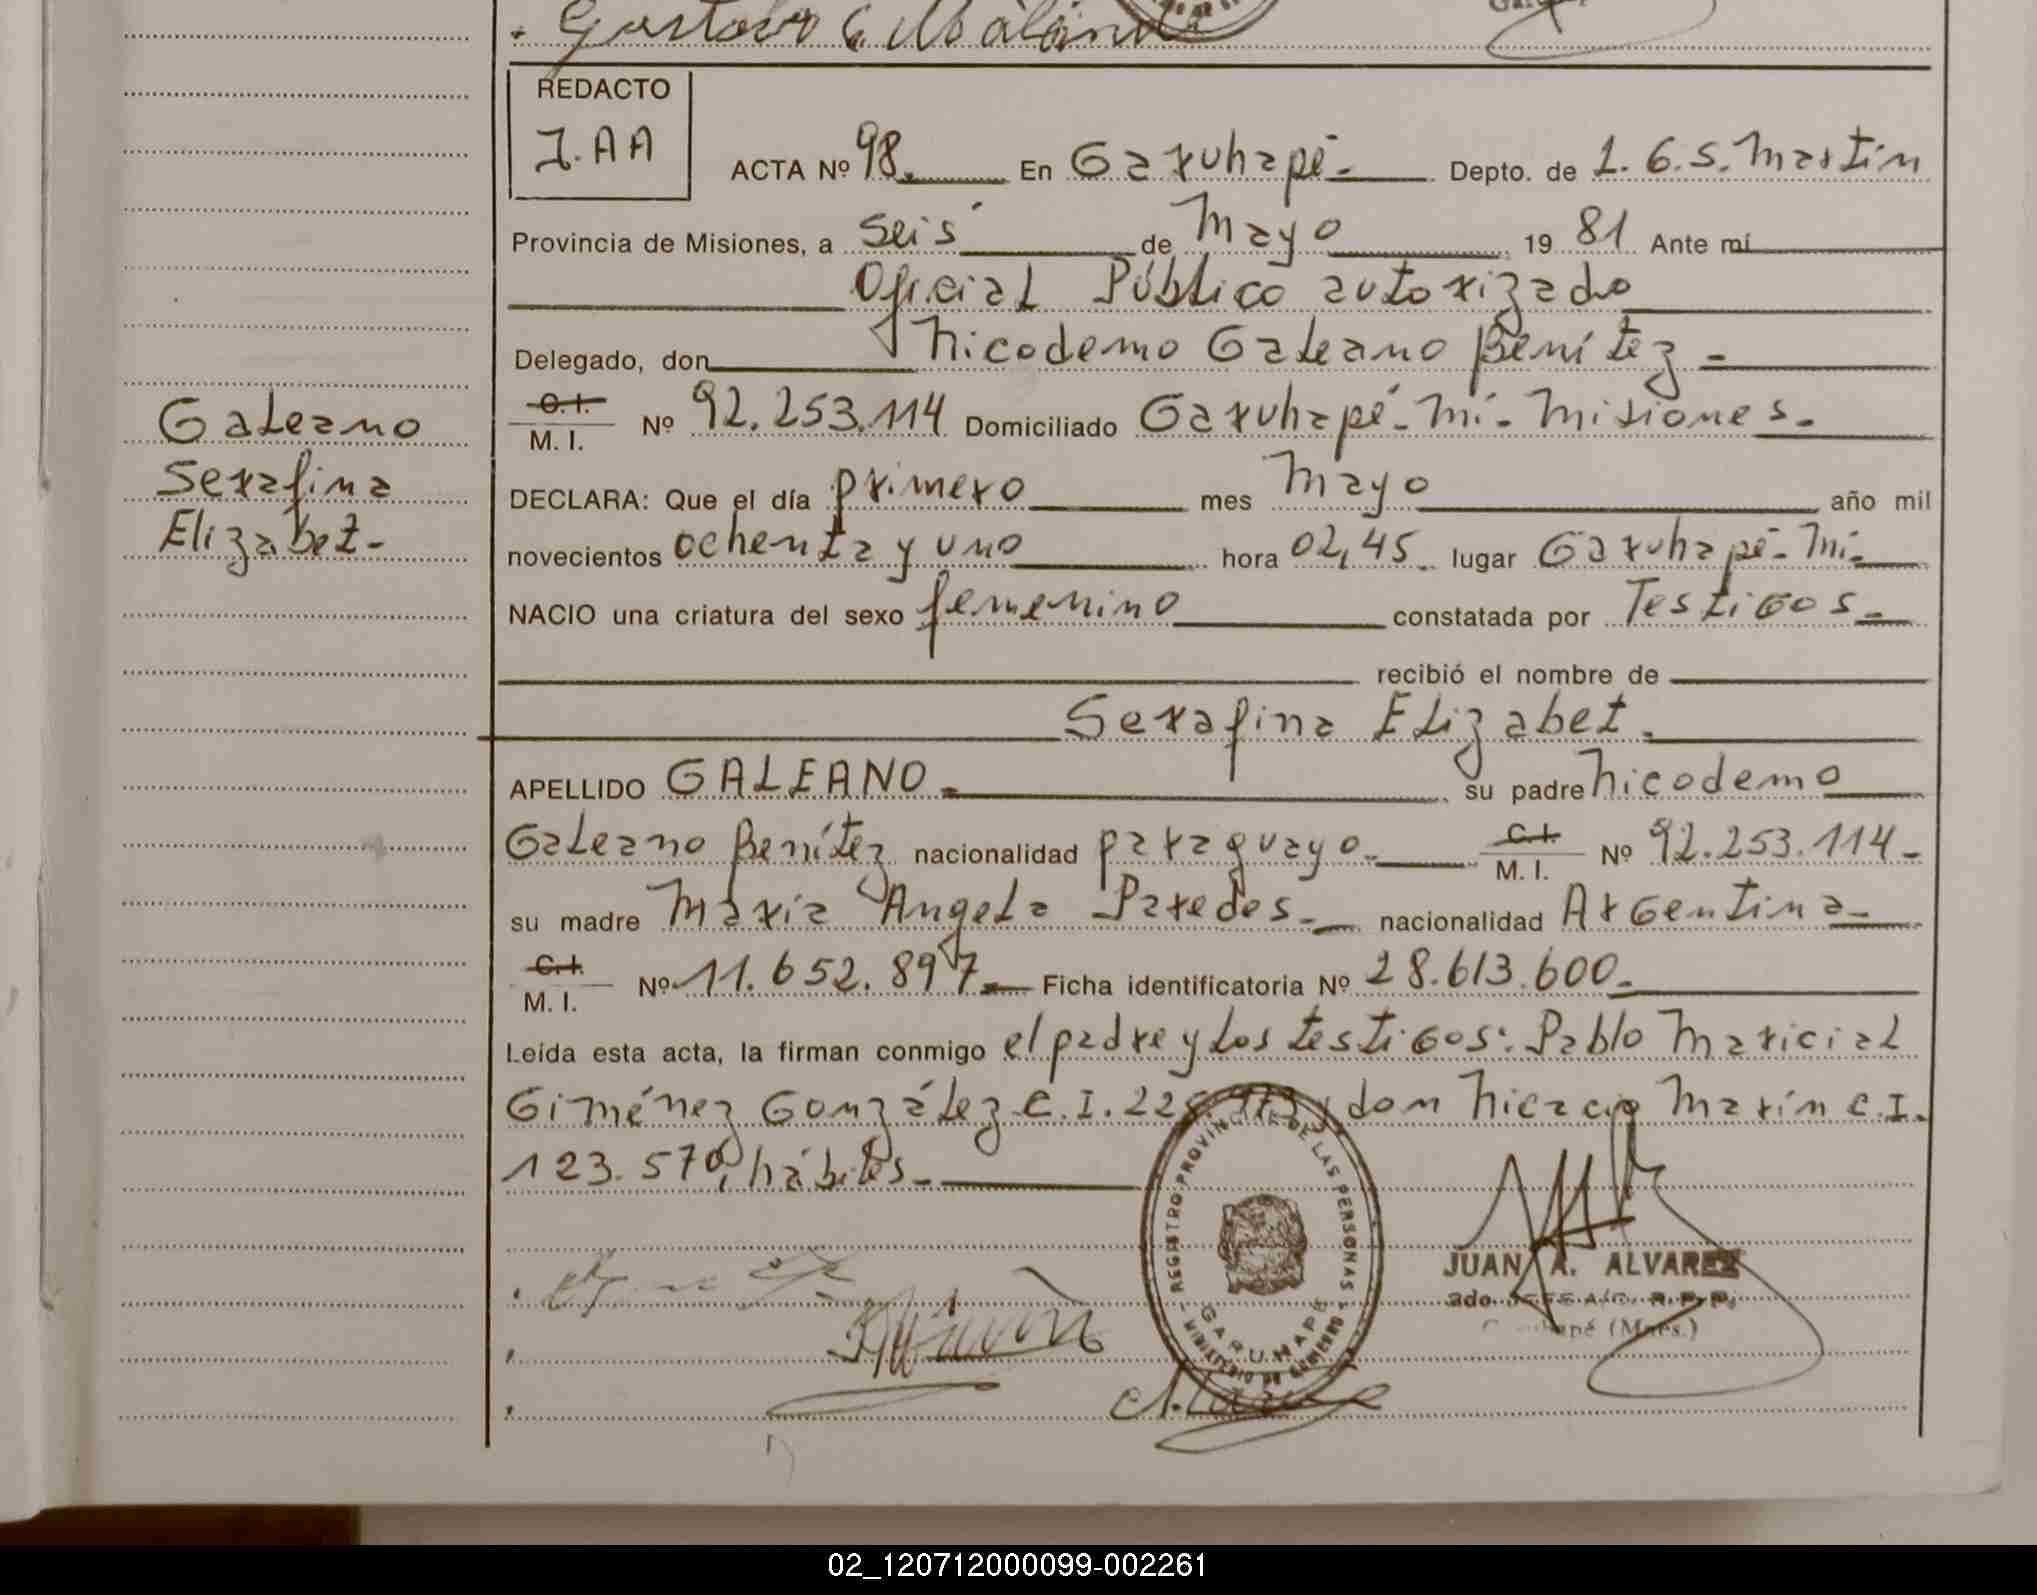 Gustavo C. Malann
REDACTO
J.AA
ACTA Nº 98. En Garuhapé- Depto. de L.G.S.Martín
Provincia de Misiones, a Seis de Mayo 19 81 Ante mí
Oficial Público autorizado
Delegado, don Nicodemo Galeano Benítez -
C.I. M. I. Nº 92.253.114 Domiciliado Garuhapé-Mí-Misiones.-
Galeano
Serafina
Elizabet-
DECLARA: Que el día primero mes Mayo año mil
novecientos ochenta y uno hora 02,45 lugar Garuhapé-Mí-
NACIO una criatura del sexo femenino constatada por Testigos-
recibió el nombre de
Serafina Elizabet.
APELLIDO GALEANO.- su padre Nicodemo
Galeano Benítez nacionalidad paraguayo.- C.I. M. I. Nº 92.253.114-
su madre María Angela Paredes- nacionalidad Argentina-
C.I. M. I. Nº 11.652.897- Ficha identificatoria Nº 28.613.600.-
Leída esta acta, la firman conmigo el padre y los testigos: Pablo Maricial
Giménez González C.I. y don Marín C.I.
123.570, hábiles-
REGISTRO PROVINCIAL DE LAS PERSONAS
MINISTERIO DE GOBIERNO
GARUHAPE
JUAN A. ALVAREZ
2do. JEFE A/C. R.P.P.
Garuhapé (Mnes.)
02_120712000099-002261